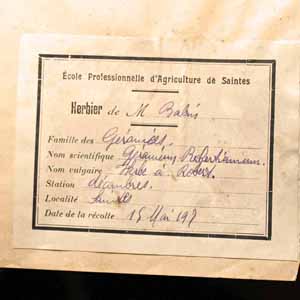 École Professionnelle d'Agriculture de Saintes
Herbier de M
Famille des Géraniées.
Nom scientifique Géranium Robertianum.
Nom vulgaire Herbe à Robert.
Station décombres.
Localité Saintes
Date de la récolte 15 Mai 197